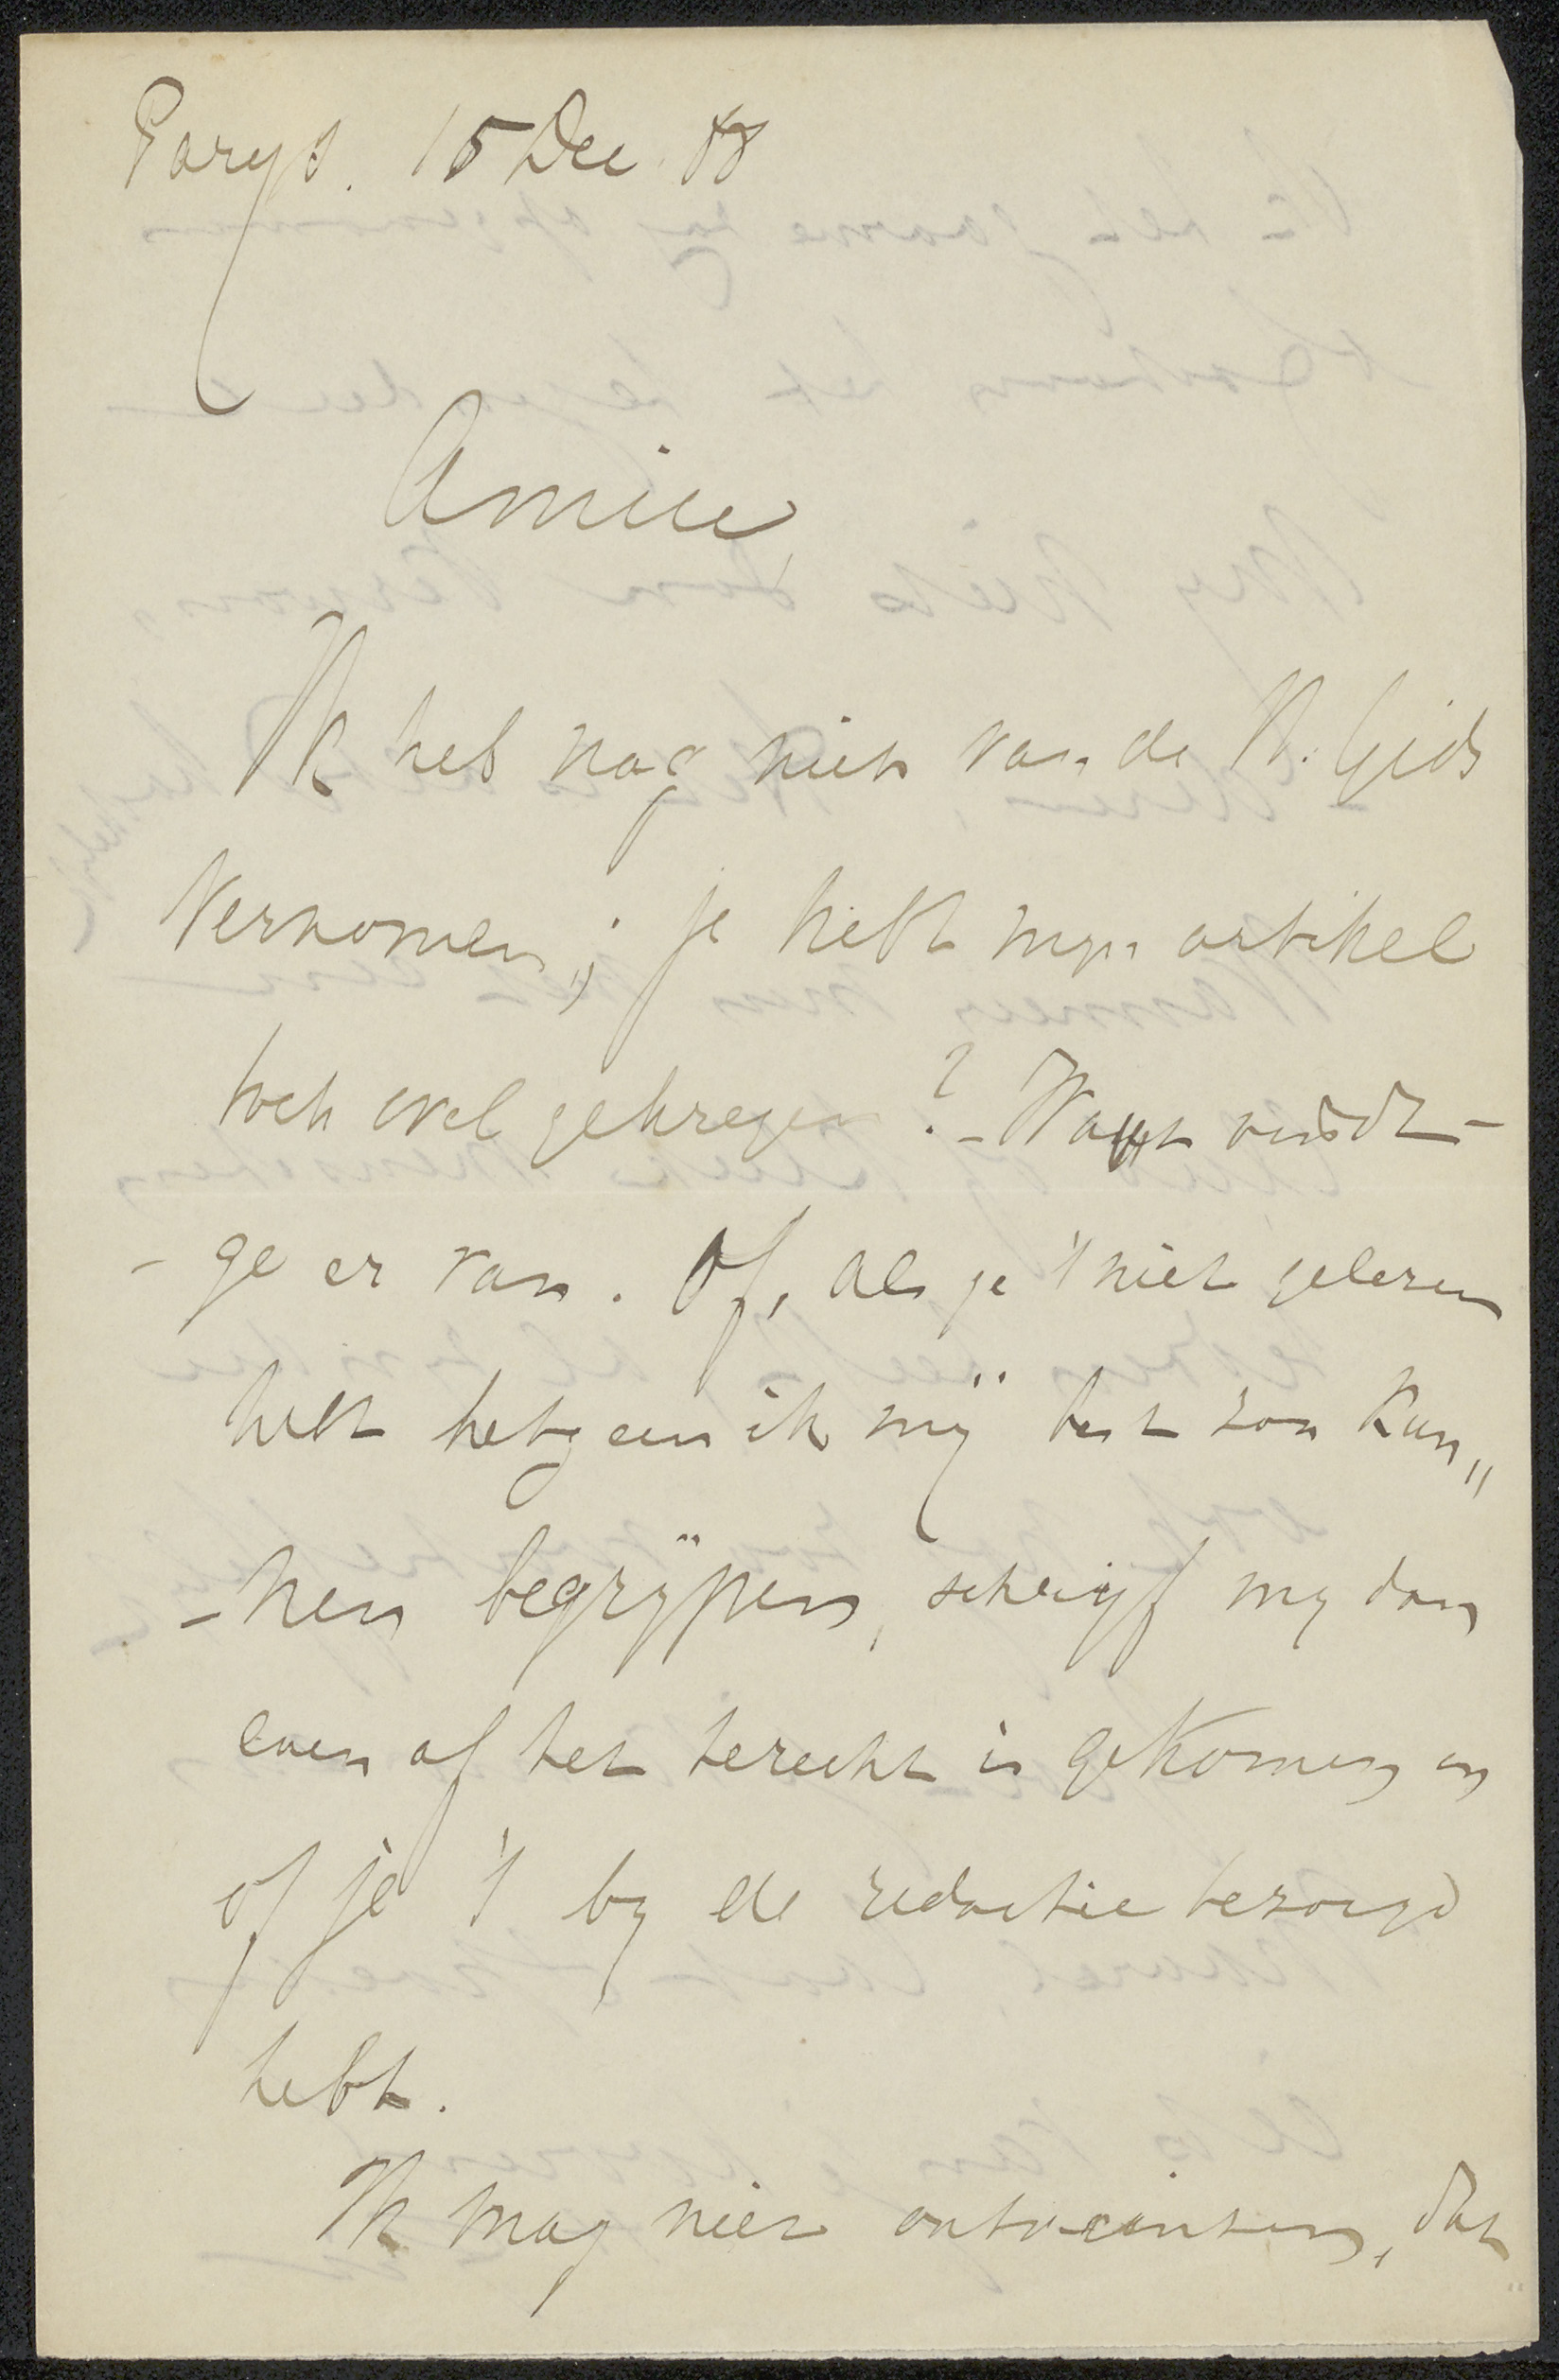 Parys. 15 Dec. 88
Amice,
Ik heb nog niets van de N. Gids
vernomen; je hebt myn artikel
toch wel gekregen? - Wat vindt -
- ge er van. Of, als je 't niet gelezen
hebt hetgeen ik mij best zou kun„
- nen begrijpen, schrijf my dan
even of het terecht is gekomen en
of je 't by de redactie bezorgd
hebt.
Ik mag niet ontveinzen, dat